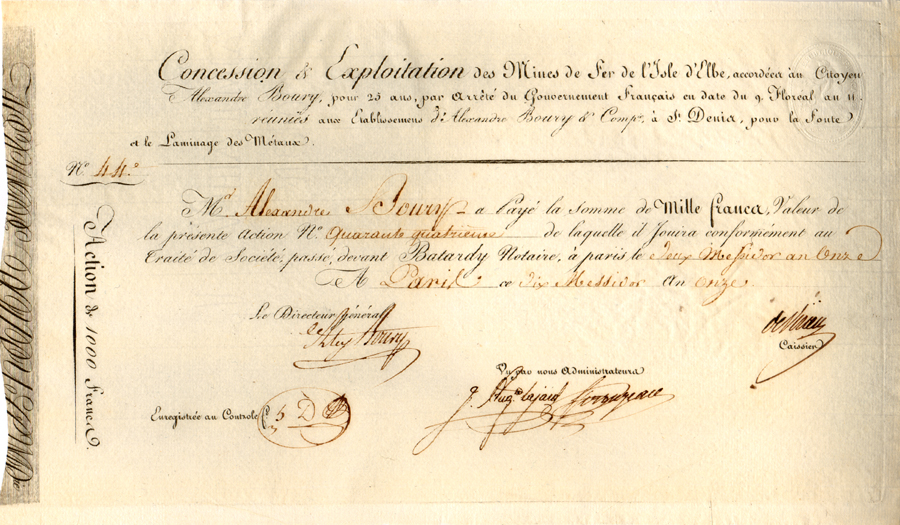 Concession & Exploitation des Mines de Fer de l'Isle d'Elbe, accordées au Citoyen
Alexandre Boury, pour 25 ans, par Arrêté du Gouvernement Français en date du 9. Floréal an 11
réuniès aux Etablissemens d'Alexandre Boury & Compe. à St. Denis, pour la Fonte
et le Laminage des Métaux.
No. 44.
Mr. Alexandre Boury a Payé la somme de Mille francs, Valeur de
la présente action No. Quarante quatrieme de laquelle il Jouira conformément au
Traité de Société, passé, devant Batardy Notaire, à paris le deux Messidor an Onze
A Paris ce dix Messidor An onze.
Le Directeur Général
Boury
Caissier
Vu par nous Administrateurs
Enregistrée au Controle f. 5 D
Action de 1000 Francs.